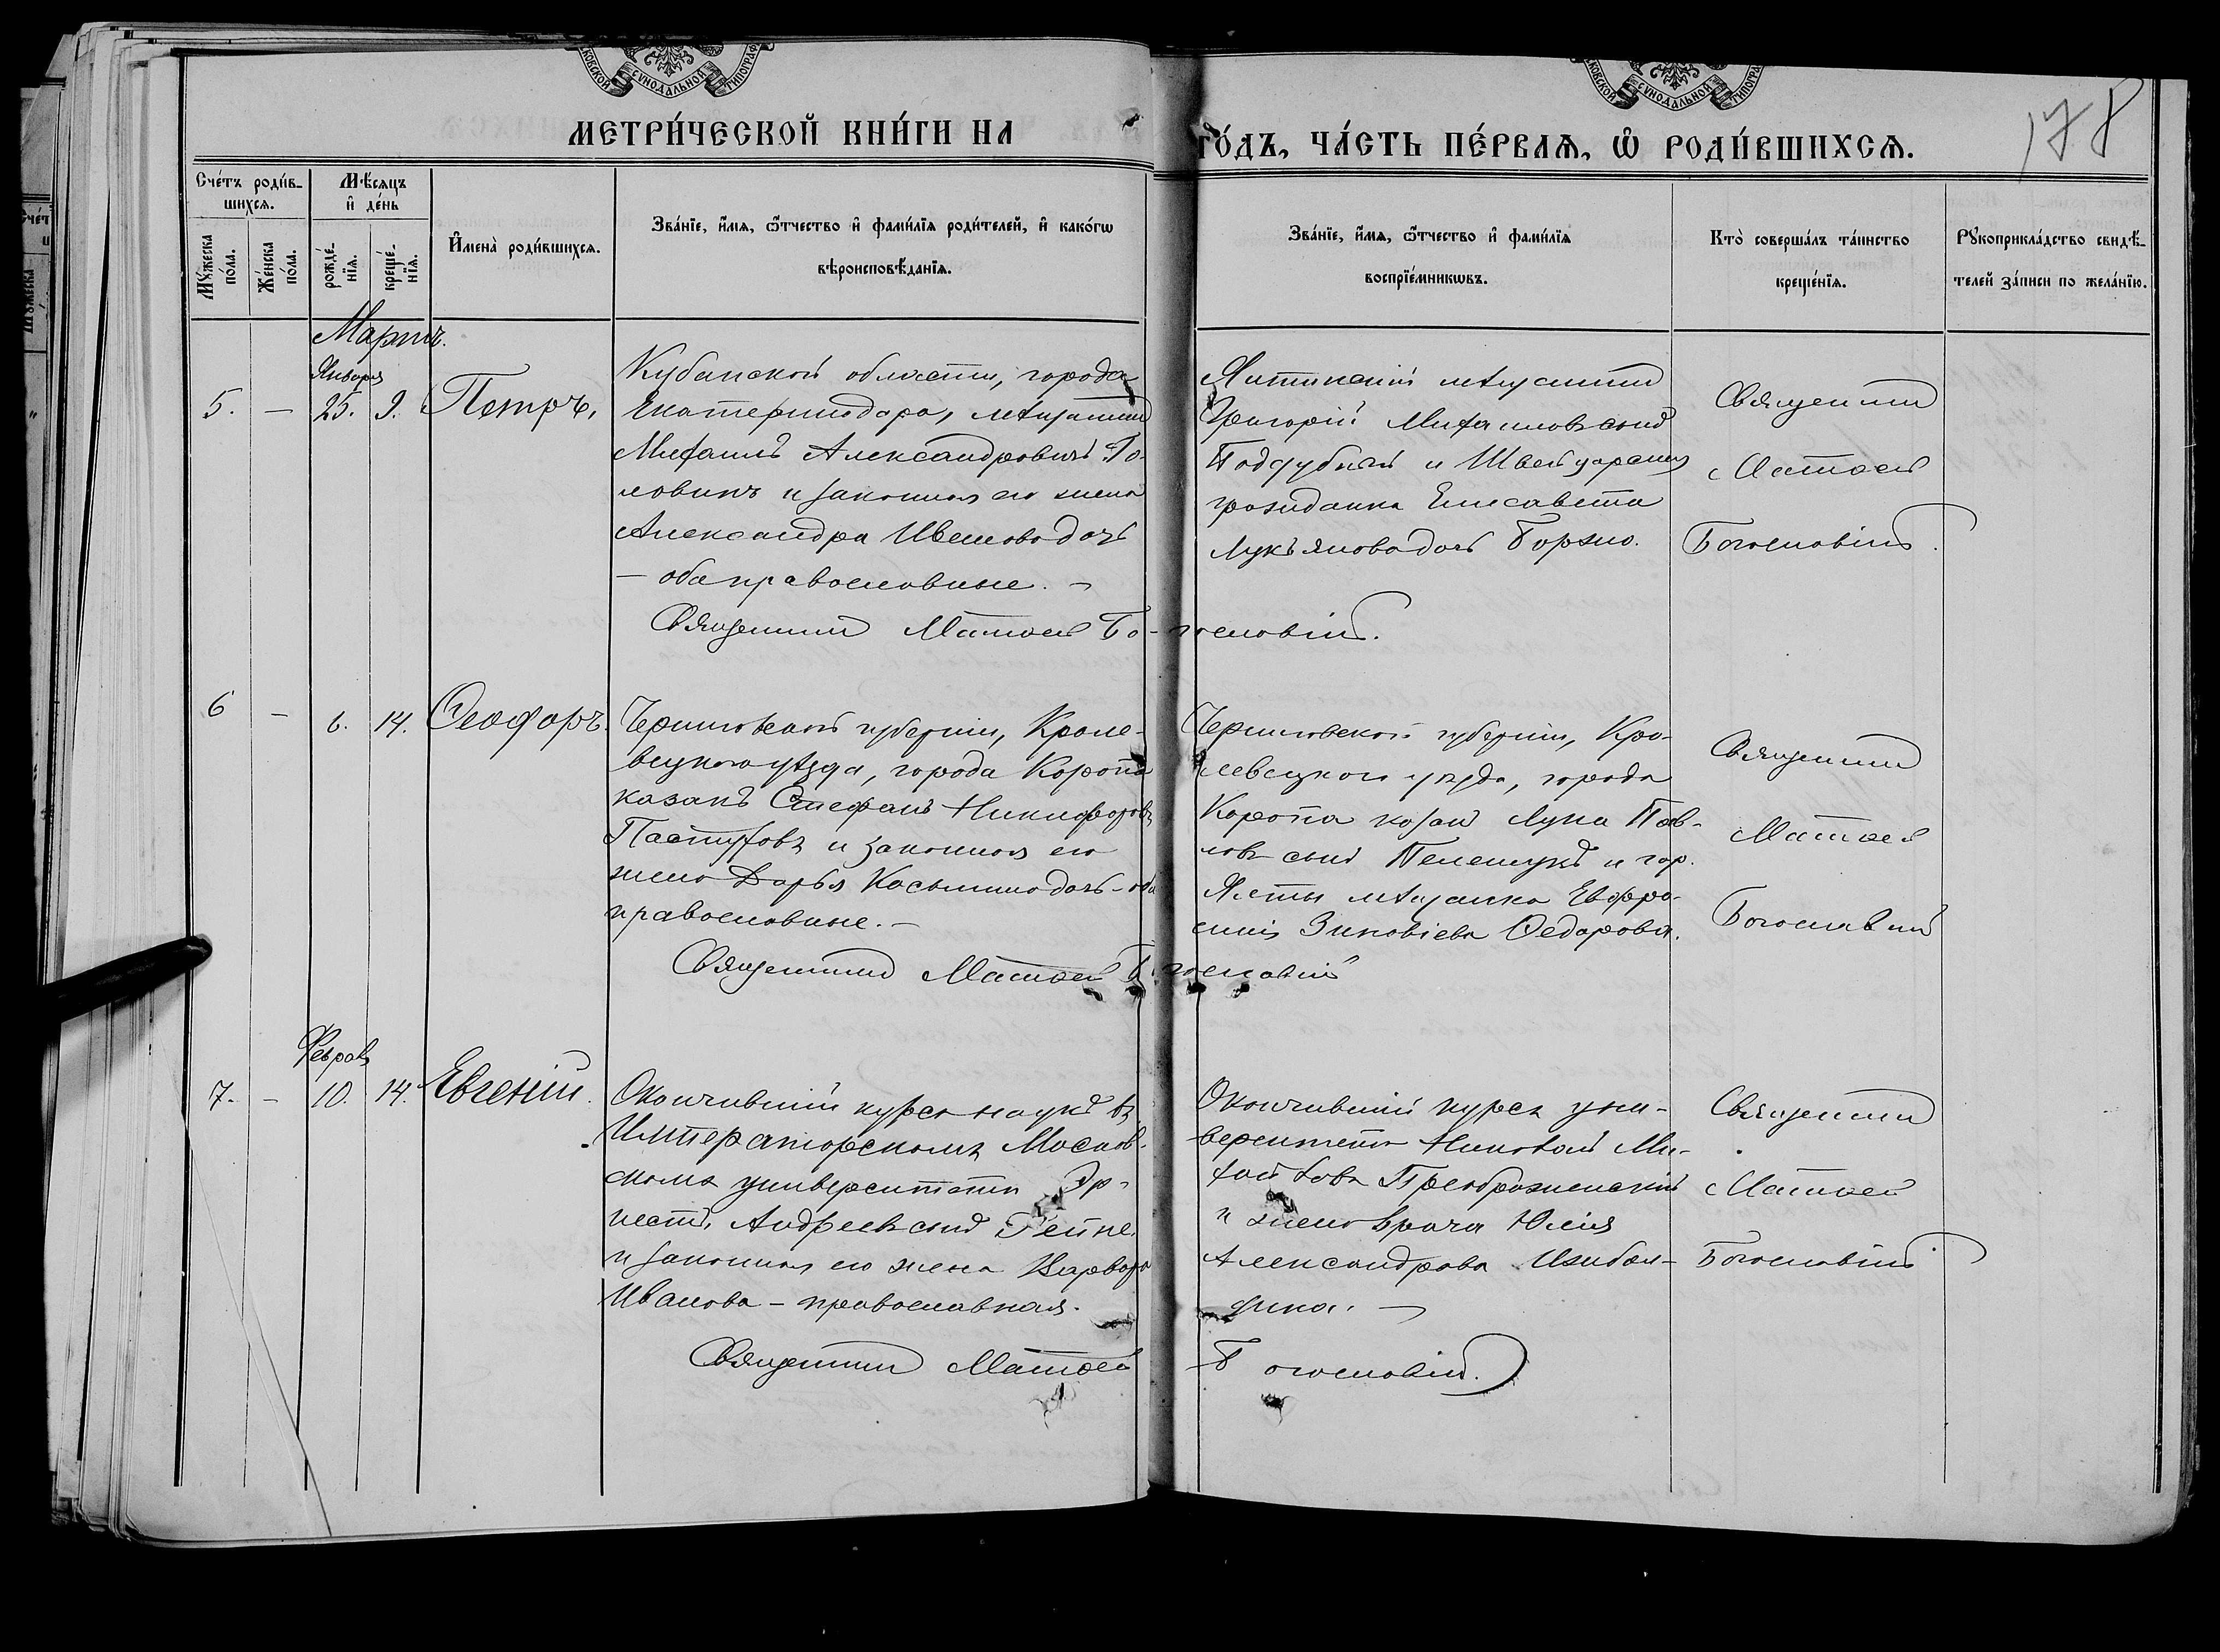 КОВСКОЙ СѴНОДАЛЬНОЙ ТИПОГРАФ
КОВСКОЙ СѴНОДАЛЬНОЙ ТИПОГРАФ
МЕТРИ́ЧЕСКОЙ КНИ́ГИ НА
ГО́ДЪ, ЧА́СТЬ ПЕ́РВАѦ, Ѡ҆ РОДИ́ВШИХСѦ.
178
Сче́тъ роди́в-
шихсѧ.
Мꙋ́жеска
по́ла.
Же́нска
по́ла.
Мѣ́сѧцъ
и҆ де́нь
рожде́-
нїѧ.
креще́-
нїѧ.
И҆мена̀ роди́вшихсѧ.
Зва́нїе, и҆́мѧ, ѻ҆́тчество и҆ фами́лїѧ роди́телей, и҆ како́гѡ
вѣроисповѣ́данїѧ.
Зва́нїе, и҆́мѧ, ѻ҆́тчество и҆ фами́лїѧ
воспрїе́мникѡвъ.
Кто̀ соверша́лъ та́инство
креще́нїѧ.
Рꙋкоприкла́дство свидѣ́-
телей за́писи по жела́нїю.
Мартъ.
Января
5. — 25. 9. Петръ,
Кубанской области, города
Екатеринодара, мѣщанинъ
Михаилъ Александровичъ Го-
ловинъ и законная его жена
Александра Иванова дочь
— оба православные. —
Священникъ Матѳей Бо-гословскій.
Ялтинскій мѣщанинъ
Григорій Михаиловъ сынъ
Поддубный и Швейцарская
гражданка Елисавета
Лукьянова дочь
Священникъ
Матѳей
Богословскій.
6 — 6. 14. Ѳеодоръ.
Черниговской губерніи, Кроле-
вецкаго уѣзда, города Коропа
казакъ Стефанъ Никифоровъ
Пастуховъ и законная его
жена Дарья Косьмина дочь - оба
православные. —
Священникъ Матѳей Богословскій
Черниговской губерніи, Кро-
левецкаго уѣзда, города
Коропа козакъ Лука Пав-
ловъ сынъ Пелешукъ и гор.
Ялты мѣщанка Евфро-
синія Зиновіева Ѳедорова.
Священникъ
Матѳей
Богословскій
Феврал.
7. — 10. 14. Евгеній.
Окончившій курсъ наукъ въ
Императорскомъ Москов-
скомъ университетѣ Эр-
нестъ Андреевъ сынъ Гейне
и законная его жена Варвара
Иванова - православная.
Священникъ Матѳей Богословскій.
Окончившій курсъ уни-
верситета Николай Ми-
хайловъ Преображенскій
и жена врача Юлія
Александрова
Священникъ
Матѳей
Богословскій